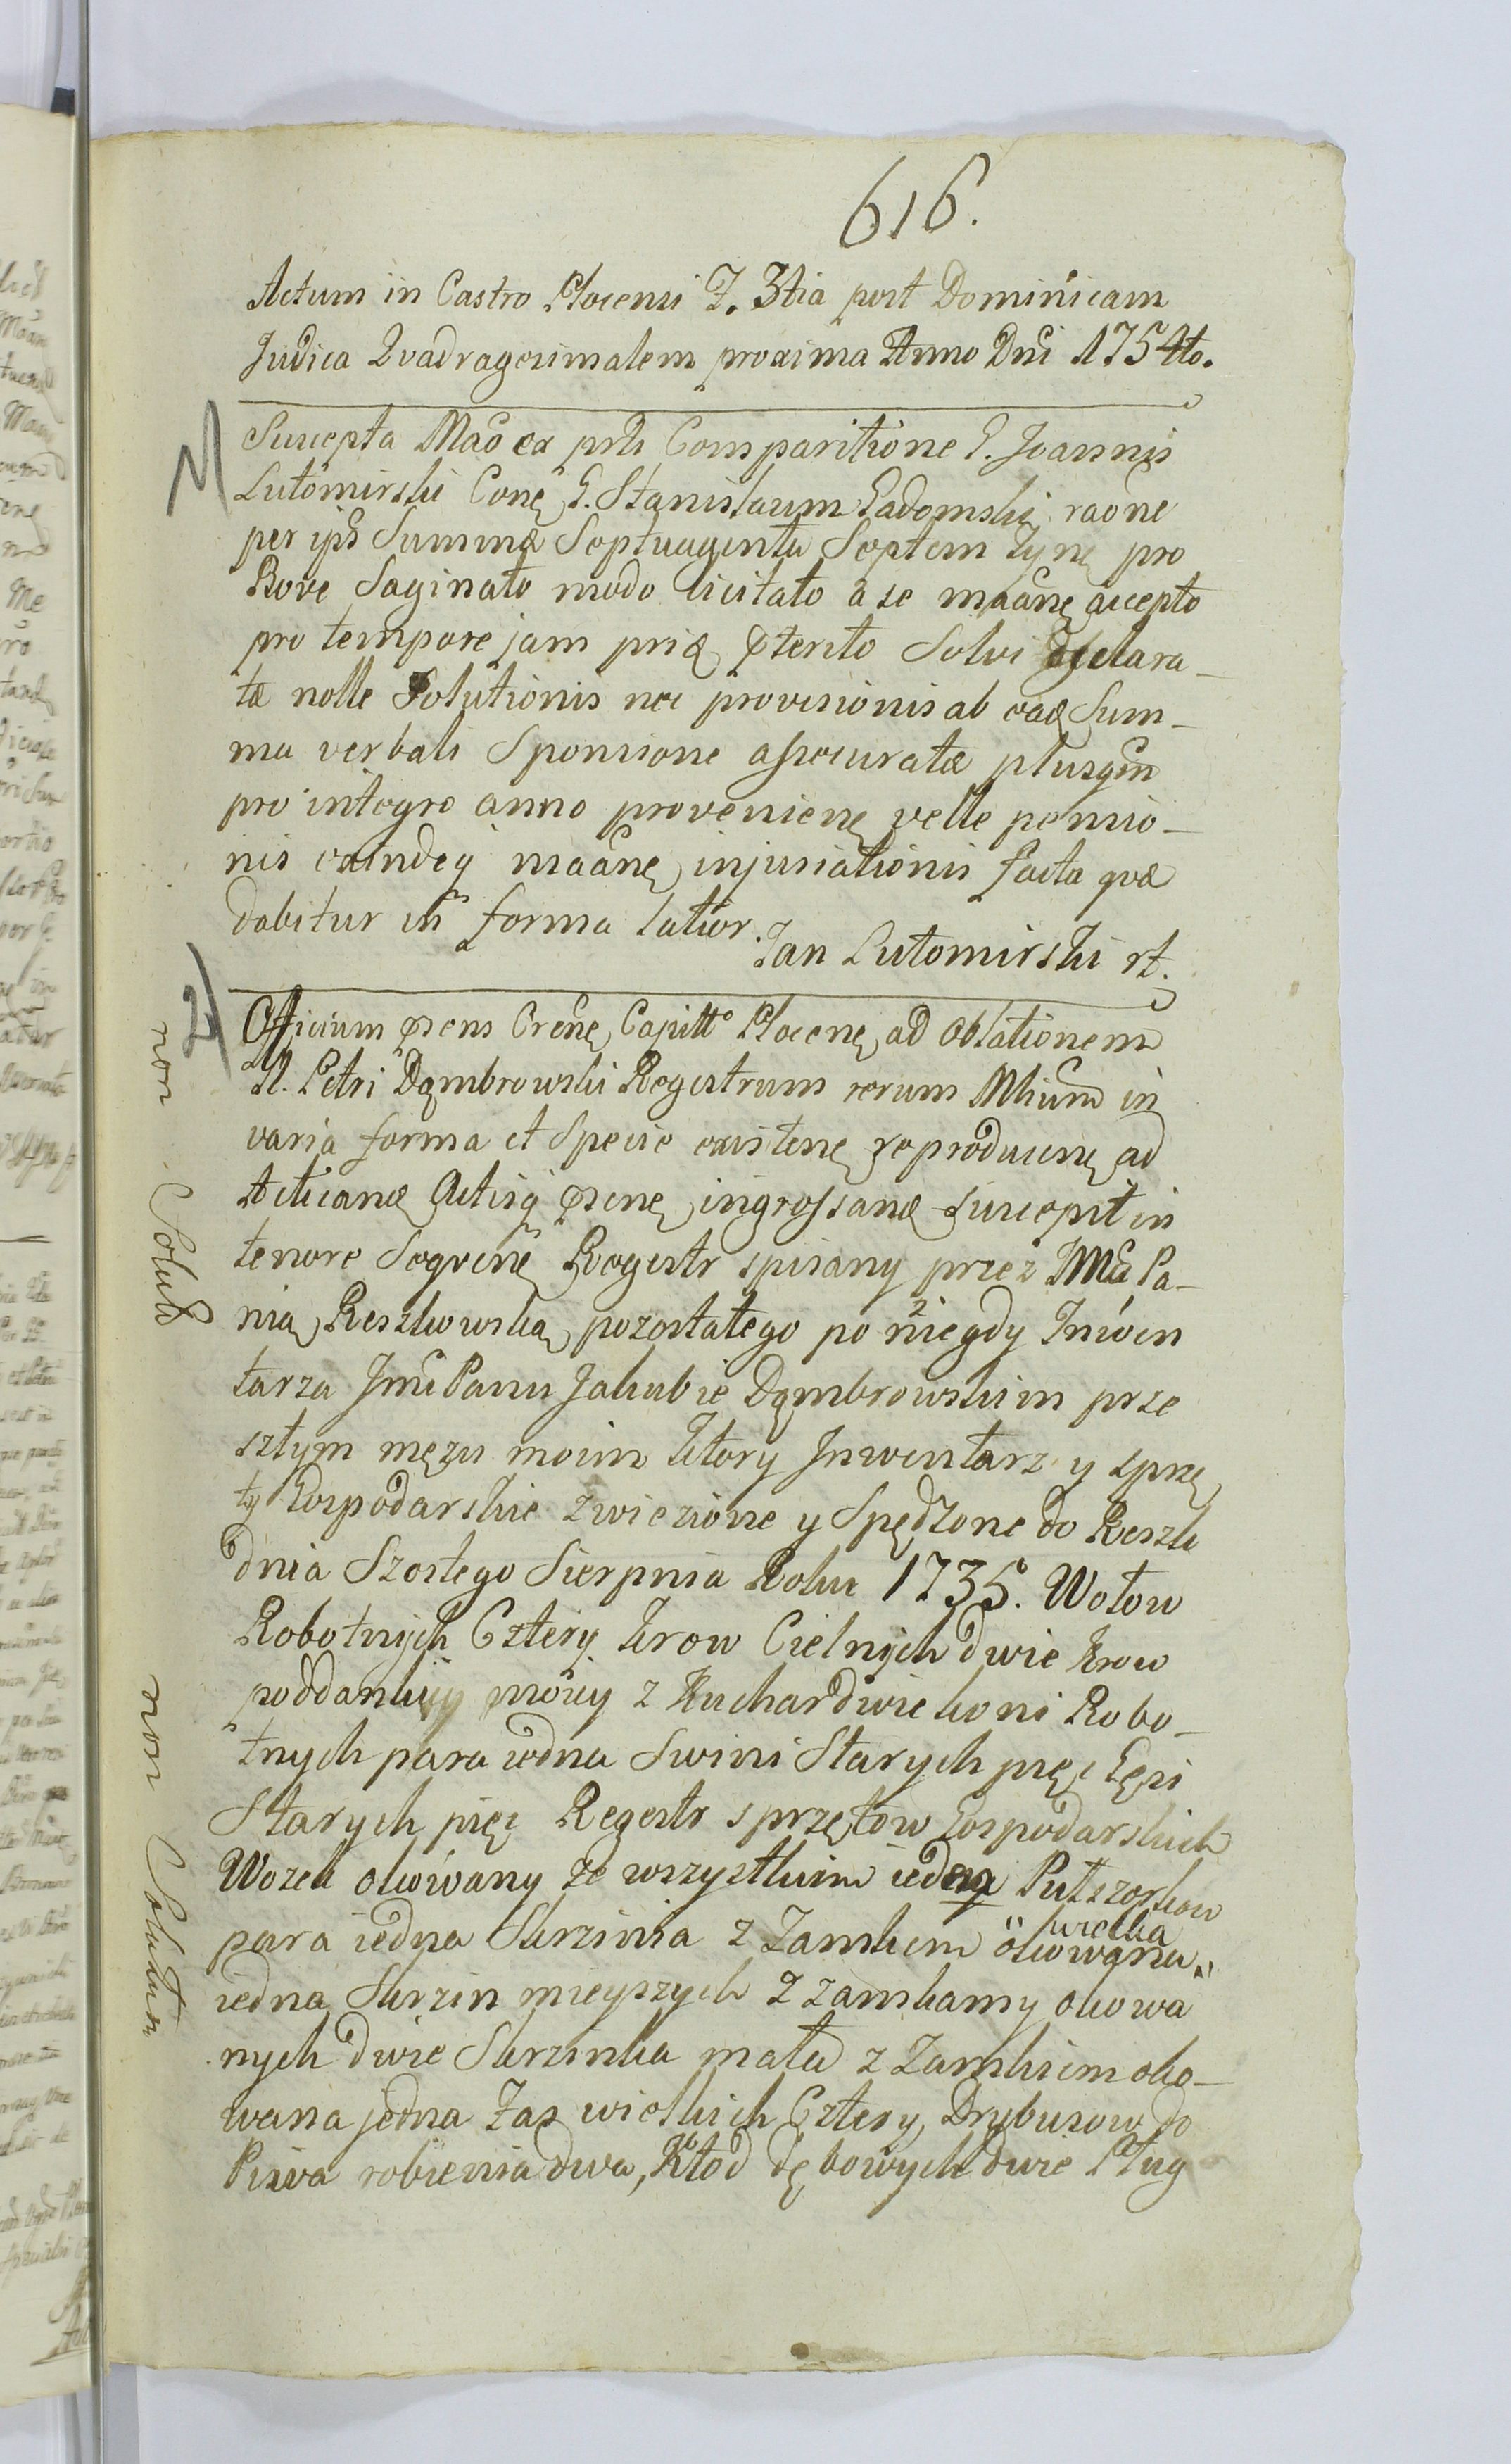 616.
Actum in Castro Plocensi F. 3tia post Dominicam
Judica Qvadragesimalem proxima Anno Dni 1754to.
1)
Suscepta Mao ex prti Comparitione G. Joannis
Lutomirski Conę G. Stanislaum Gadomski raone
per ips Summæ Septuaginta Septem Tynę pro
Bove Saginato modo licitato a se maanę accepto
pro tempore jam priæ pterito Solvi declara-
tæ nolle Solutionis nec provisionis ab eaę Sum-
ma verbali Sponsione assecuratæ plusqm
pro integro anno provenienę velle pensio-
nis exindeq maanę injuriationis facta qvæ
dabitur in forma latior.
Jan Lutomirski rt.
2)
Officium psens Crenę Capittᵒ Plocenę ad oblationem
N. Petri Dąmbrowski Regestrum rerum Mlium in
varia forma et Specie existenę reproducenę ad
Acticanę Actisq psenę ingrossanę suscepit in
tenore Seqvenę Regestr spisany przez JMć Pa-
nią Reszkowską pozostałego po niegdy Inwen
tarza Jmć Panu Jakubie Dąmbrowskim prze
szłym męzu moim Ktory Inwentarz y sprzę
ty Gospodarskie zwiezione y Spędzone do Reszk
dnia Szostego Sierpnia Roku 1735. Wołow
Robotnych Cztery Krow Cielnych dwie Krow
poddankiy mocy z Kuchar dwie koni Robo-
tnych para iedna Swini Starych pięc Gęsi
Starych pięc Regestr sprzętow Gospodarskich
Wozek okowany ze wszystkim ieden Pułszorkow
para iedna Skrzinia z Zamkiem wielka okowana
iedna Skrzin mieyszych z zamkamy okowa
nych dwie Skrzinka mała z Zamkiem oko-
wana jedna Kaz wielkich Cztery, Drybusow do
Piwa robienia dwa, Kłod dębowych dwie Pług
non Solut
non Solutum